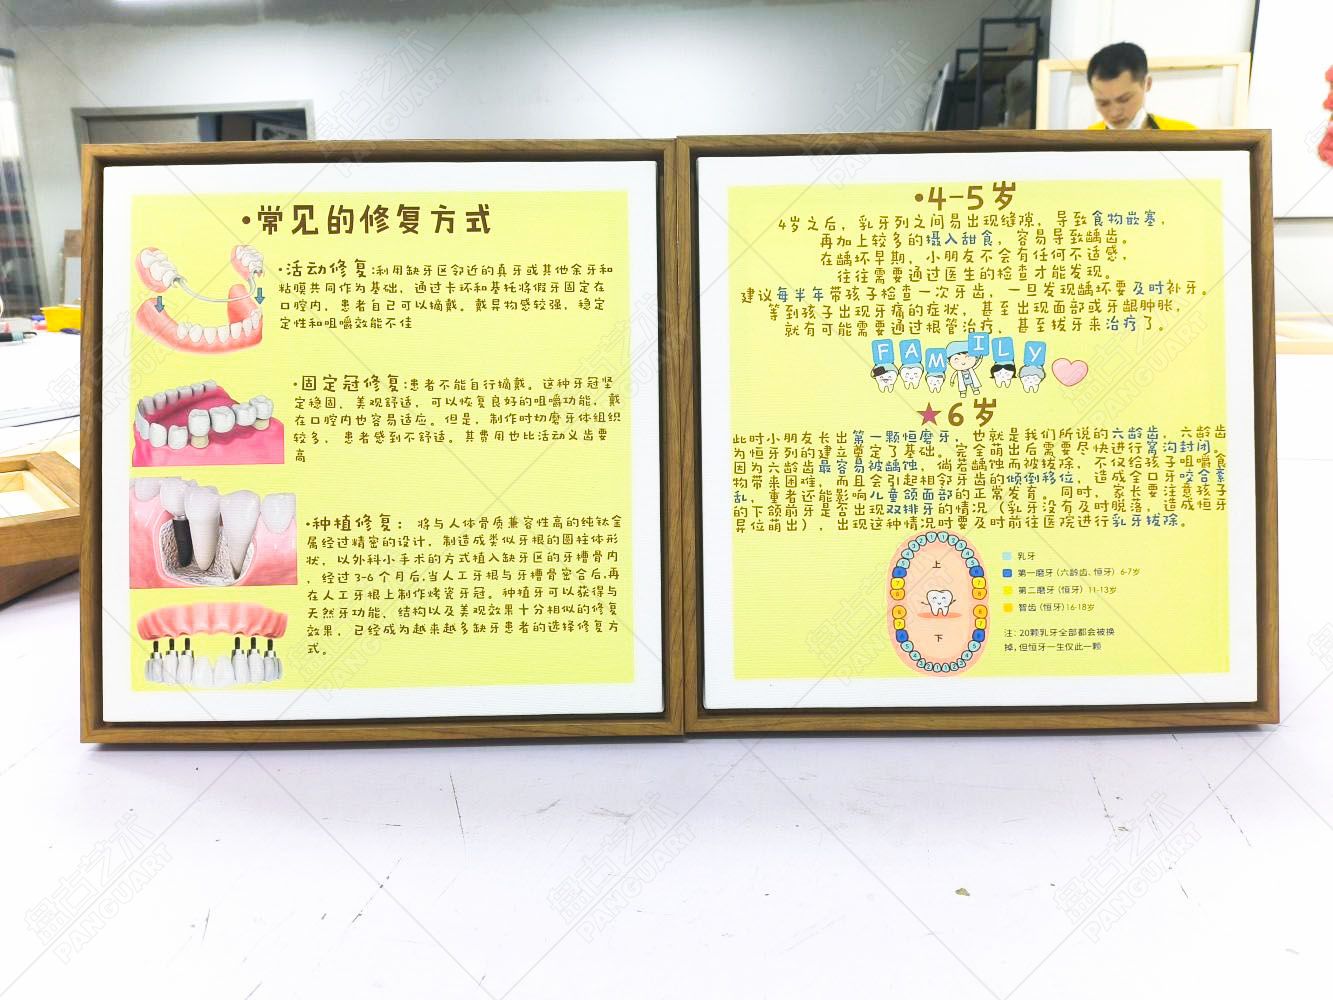 •常见的修复方式
•活动修复:利用缺牙区邻近的真牙或其他余牙和
粘膜共同作为基础，通过卡环和基托将假牙固定在
口腔内，患者自己可以摘戴。戴异物感较强，稳定
定性和咀嚼效能不佳
•固定冠修复:患者不能自行摘戴。这种牙冠坚
定稳固，美观舒适，可以恢复良好的咀嚼功能，戴
在口腔内也容易适应。但是，制作时切磨牙体组织
较多，患者感到不舒适。其费用也比活动义齿要
高
•种植修复：将与人体骨质兼容性高的纯钛金
属经过精密的设计，制造成类似牙根的圆柱体形
状，以外科小手术的方式植入缺牙区的牙槽骨内
，经过3-6个月后,当人工牙根与牙槽骨密合后,再
在人工牙根上制作烤瓷牙冠。种植牙可以获得与
天然牙功能、结构以及美观效果十分相似的修复
效果，已经成为越来越多缺牙患者的选择修复方
式。
•4-5岁
4岁之后，乳牙列之间易出现缝隙，导致食物嵌塞，
再加上较多的摄入甜食，容易导致龋齿。
在龋坏早期，小朋友不会有任何不适感，
往往需要通过医生的检查才能发现。
建议每半年带孩子检查一次牙齿，一旦发现龋坏要及时补牙。
等到孩子出现牙痛的症状，甚至出现面部或牙龈肿胀，
就有可能需要通过根管治疗，甚至拔牙来治疗了。
FAMILY
★6岁
此时小朋友长出第一颗恒磨牙，也就是我们所说的六龄齿，六龄齿
为恒牙列的建立奠定了基础。完全萌出后需要尽快进行窝沟封闭。
因为六龄齿最容易被龋蚀，倘若龋蚀而被拔除，不仅给孩子咀嚼食
物带来困难，而且会引起相邻牙齿的倾倒移位，造成全口牙咬合紊
乱，重者还能影响儿童颌面部的正常发育。同时，家长要注意孩子
的下颌前牙是否出现双排牙的情况（乳牙没有及时脱落，造成恒牙
异位萌出），出现这种情况时要及时前往医院进行乳牙拔除。
上
下
乳牙
第一磨牙（六龄齿、恒牙）6-7岁
第二磨牙（恒牙）11-13岁
智齿（恒牙）16-18岁
注：20颗乳牙全部都会被换
掉,但恒牙一生仅此一颗
盘古艺术
PANGUART